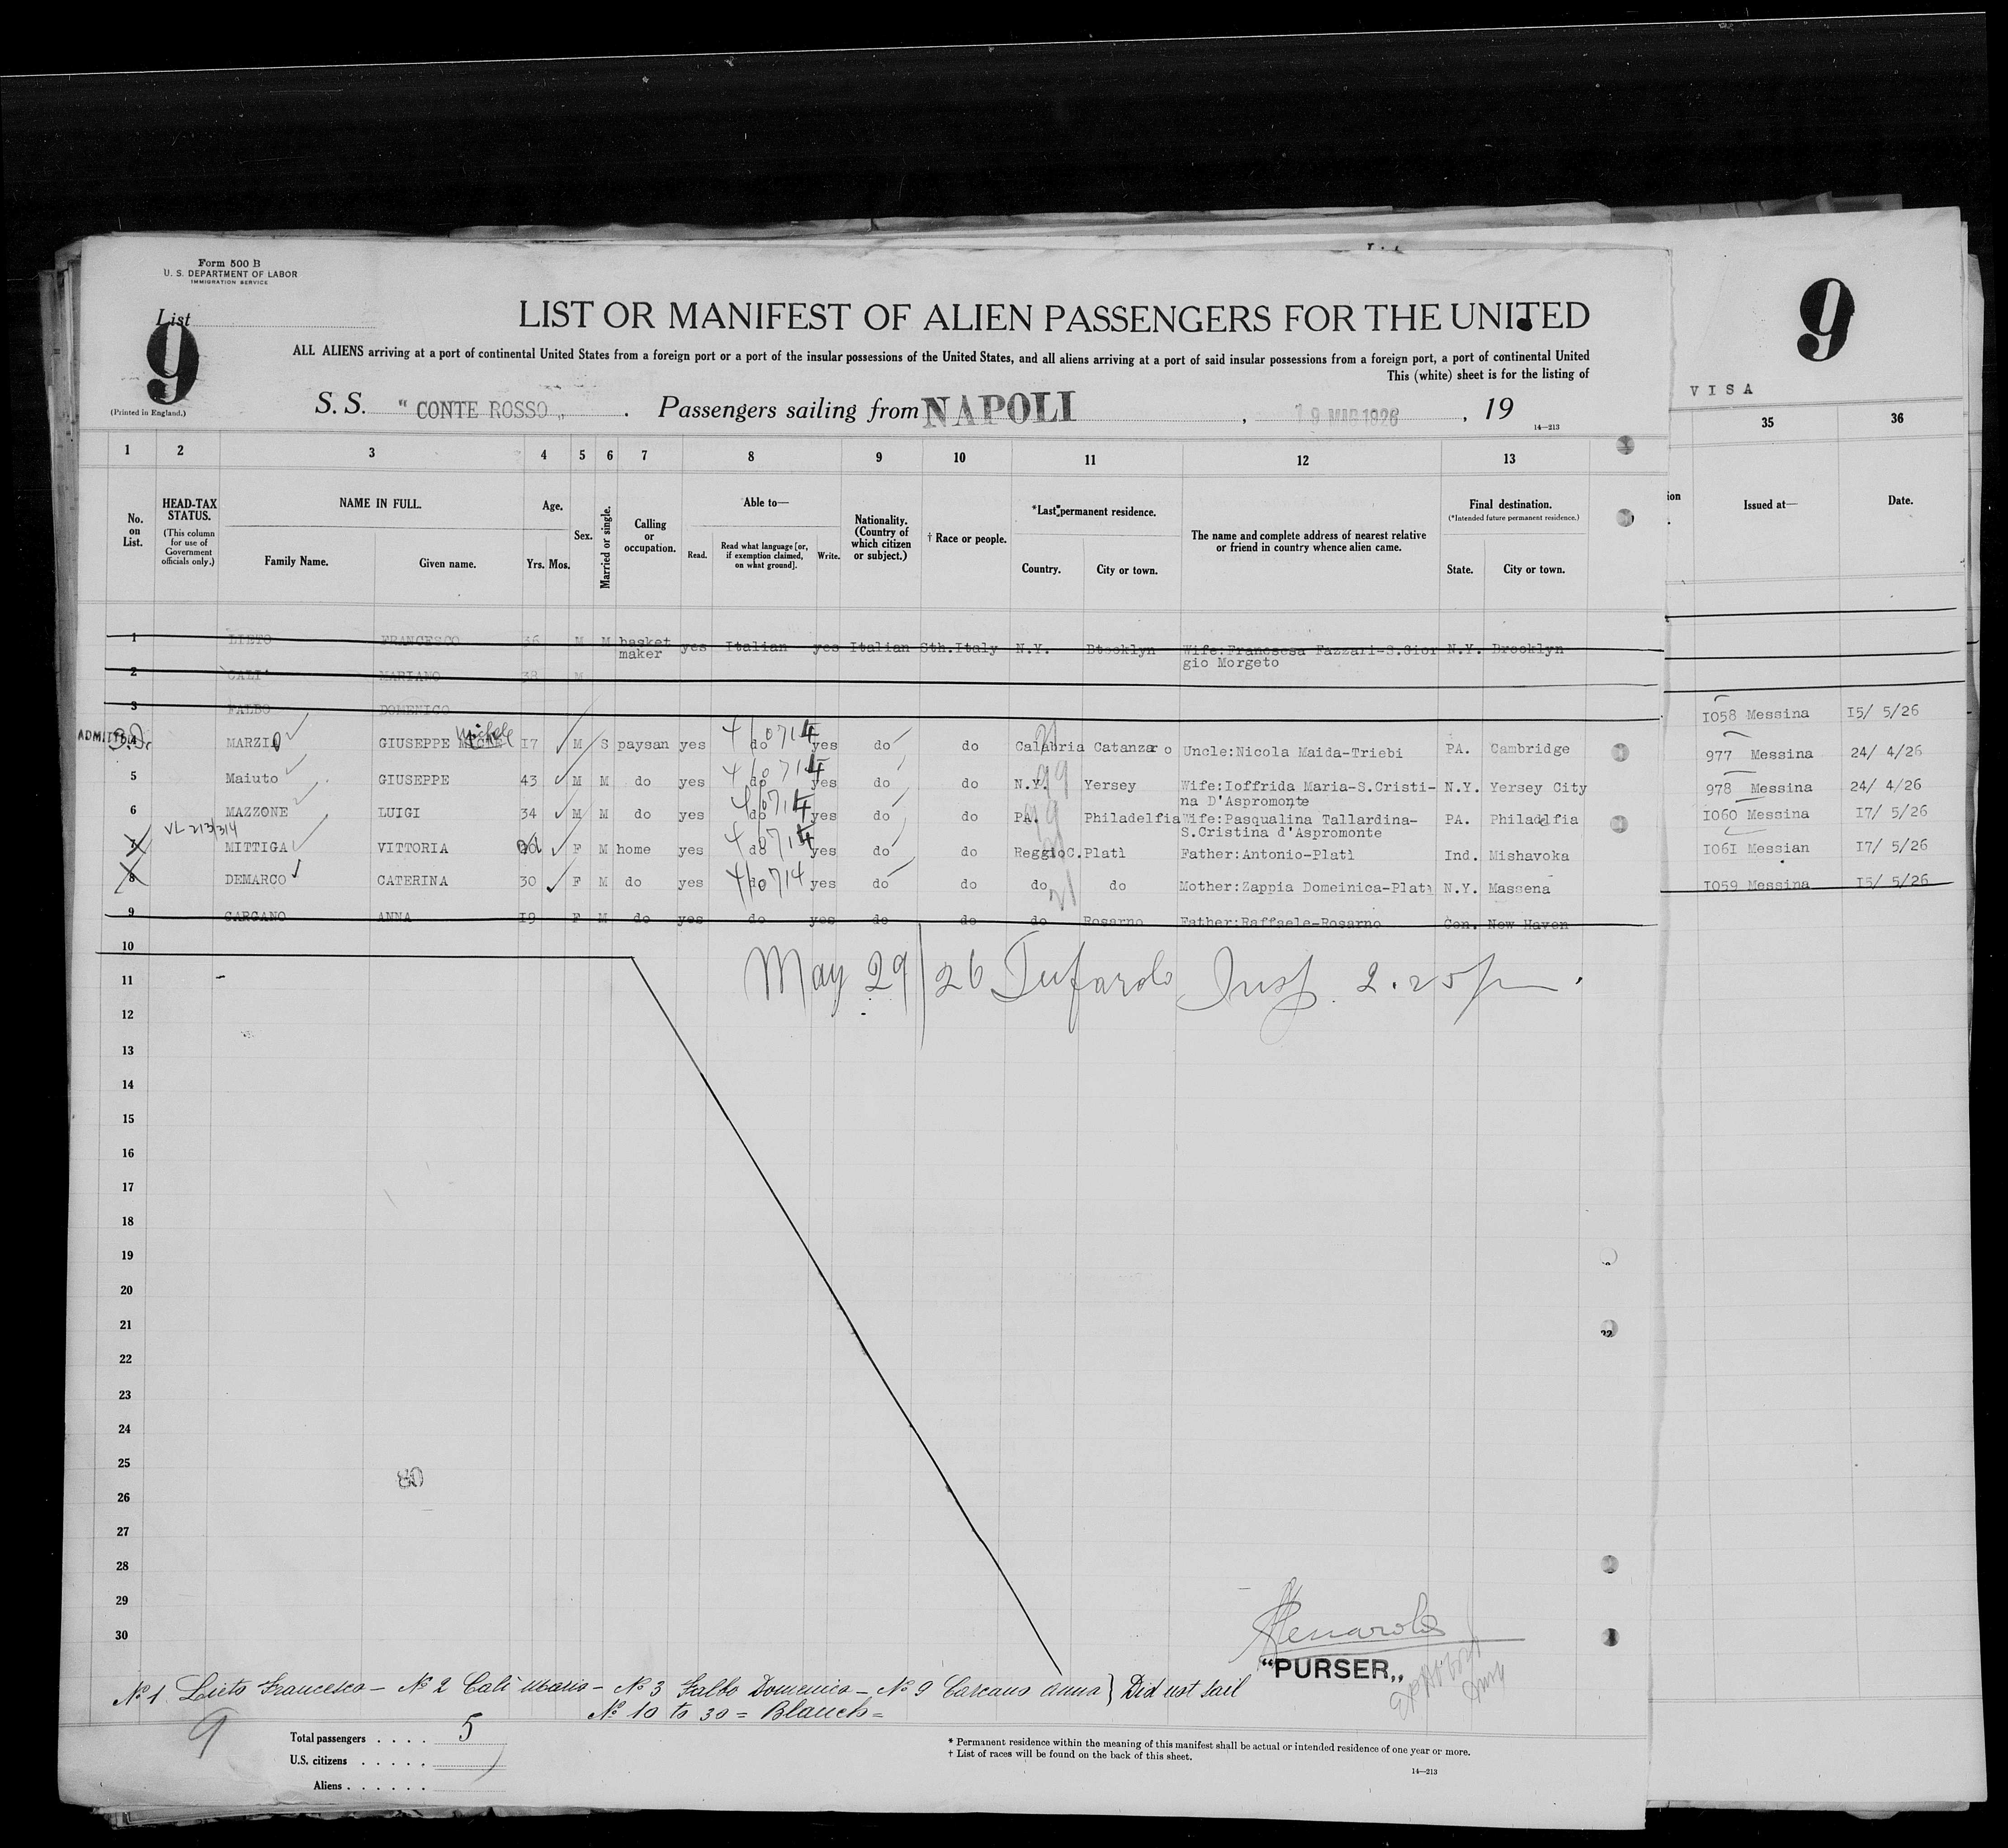 Form 500 B
U. S. DEPARTMENT OF LABOR
IMMIGRATION SERVICE
List
9
(Printed in England.)
LIST OR MANIFEST OF ALIEN PASSENGERS FOR THE UNITED
ALL ALIENS arriving at a port of continental United States from a foreign port or a port of the insular possessions of the United States, and all aliens arriving at a port of said insular possessions from a foreign port, a port of continental United
This (white) sheet is for the listing of
S. S. "CONTE ROSSO„ . Passengers sailing from NAPOLI , 19 1926 , 19
14—213
9
VISA
1 2 3 4 5 6 7 8 9 10 11 12 13 35 36
No. on List.
HEAD-TAX STATUS.
(This column for use of Government officials only.)
NAME IN FULL.
Family Name. Given name.
Age.
Yrs. Mos.
Sex.
Married or single.
Calling or occupation.
Able to—
Read. Read what language [or, if exemption claimed, on what ground]. Write.
Nationality. (Country of which citizen or subject.)
† Race or people.
*Last permanent residence.
Country. City or town.
The name and complete address of nearest relative or friend in country whence alien came.
Final destination.
(*Intended future permanent residence.)
State. City or town.
ion
Issued at—
Date.
1 LIETO FRANCESCO 36 M M basket maker yes Italian yes Italian Sth.Italy N.Y. Btooklyn Wife:Francsesa Fazzari-S.Gior gio Morgeto N.Y. Brooklyn
2 CALI' MARIANO 38 M
3 FALBO DOMENICO
1058 Messina 15/ 5/26
ADMITTED
MARZIO GIUSEPPE Michele 17 M S paysan yes do yes do do Calabria Catanzaro Uncle:Nicola Maida-Triebi PA. Cambridge 977 Messina 24/ 4/26
4/0714
5 Maiuto GIUSEPPE 43 M M do yes do yes do do N.Y. Yersey Wife:Ioffrida Maria-S.Cristi-na D'Aspromonte N.Y. Yersey City 978 Messina 24/ 4/26
4/0714
6 MAZZONE LUIGI 34 M M do yes do yes do do PA. Philadelfia Wife:Pasqualina Tallardina-S.Cristina d'Aspromonte PA. Philadlfia 1060 Messina 17/ 5/26
4/0714
VL 213/314
7 MITTIGA VITTORIA F M home yes do yes do do Reggio C. Platì Father:Antonio-Platì Ind. Mishavoka 1061 Messian 17/ 5/26
4/0714
8 DEMARCO CATERINA 30 F M do yes do yes do do do do Mother:Zappia Domeinica-Platì N.Y. Massena 1059 Messina 15/ 5/26
4/0714
9 CARCANO ANNA 19 F M do yes do yes do do do Rosarno Father:Raffaele-Rosarno Con. New Haven
10
May 29/26 Tufarolo Insp. 2.25 pm.
11
12
13
14
15
16
17
18
19
20
21
22
23
24
25
26
27
28
29
30
80
"PURSER„
No 1 Lieto Francesco — No 2 Calì Mario — No 3 Falbo Domenico — No 9 Carcano Anna } Did not sail
No 10 to 30 = Blanch =
9
Total passengers . . . . 5
U.S. citizens . . . . .
Aliens . . . . . .
* Permanent residence within the meaning of this manifest shall be actual or intended residence of one year or more.
† List of races will be found on the back of this sheet.
14—213